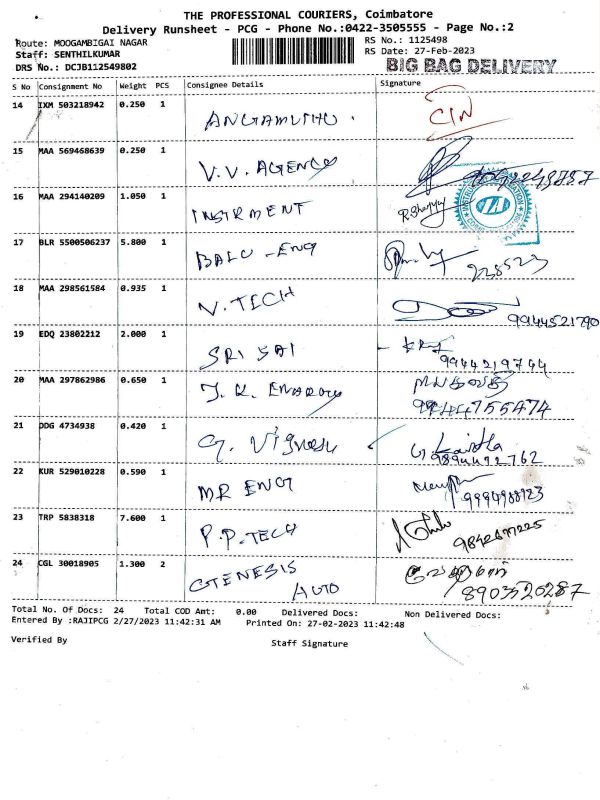 THE PROFESSIONAL COURIERS, Coimbatore
Delivery Runsheet - PCG - Phone No.:0422-3505555 - Page No.:2
Route: MOOGAMBIGAI NAGAR
RS No.: 1125498
Staff: SENTHILKUMAR
RS Date: 27-Feb-2023
DRS No.: DCJB112549802
BIG BAG DELIVERY
S No Consignment No Weight PCS Consignee Details Signature
14 IXM 503218942 0.250 1 ANGAMUTHU .
15 MAA 569468639 0.250 1 V.V. AGENCY
16 MAA 294140209 1.050 1 INSTRMENT
17 BLR 5500506237 5.800 1 BALU - ENG 228523
18 MAA 298561584 0.935 1 V. TECH 9944521790
19 EDQ 23802212 2.000 1 SRI SAI 9944219744
20 MAA 297862986 0.650 1 J. K. 9944755474
21 DDG 4734938 0.420 1 G. Vignesh 9894422762
22 KUR 529010228 0.590 1 MR ENG 9994988123
23 TRP 5838318 7.600 1 P.P. TECH 9842677225
24 CGL 30018905 1.300 2 GTENESIS AUTO 8903520287
Total No. Of Docs: 24 Total COD Amt: 0.00 Delivered Docs: Non Delivered Docs:
Entered By :RAJIPCG 2/27/2023 11:42:31 AM Printed On: 27-02-2023 11:42:48
Verified By Staff Signature